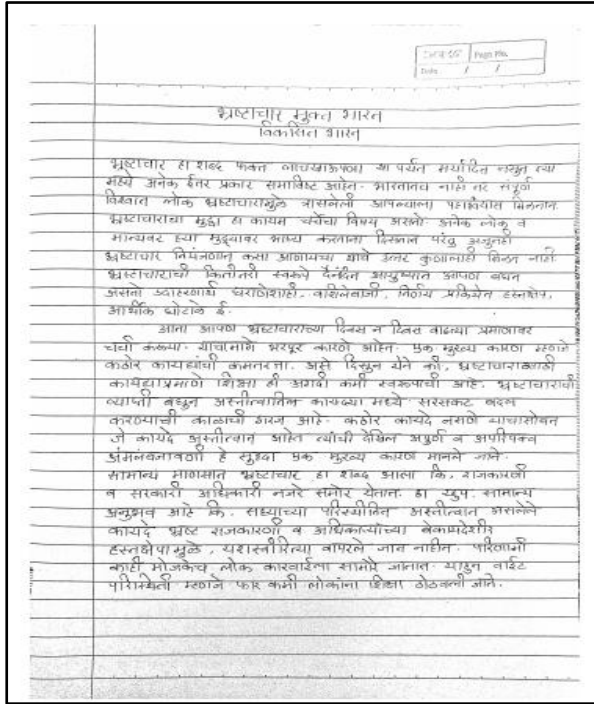 Page No.
Date / /
भ्रष्टाचार मुक्त भारत
विकसित भारत
भ्रष्टाचार हा शब्द फक्त लाचखाऊपणा या पर्यंत मर्यादित नसून त्या
मध्ये अनेक ईतर प्रकार समाविष्ट आहेत. भारतातच नाही तर संपूर्ण
विश्वात लोक भ्रष्टाचारामुळे त्रासलेली आपल्याला पहावयास मिळतात.
भ्रष्टाचाराचा मुद्दा हा कायम चर्चेचा विषय असतो. अनेक लोक व
मान्यवर ह्या मुद्द्यावर भाष्य करताना दिसतात परंतु अजुनही
भ्रष्टाचार नियंत्रणात कसा आणायचा याचे उत्तर कुणालाही मिळत नाही.
भ्रष्टाचाराची कितीतरी स्वरूपे दैनंदिन आयुष्यात आपण बघत
असतो उदाहरणार्थ घराणेशाही, वशिलेबाजी, निर्णय प्रक्रियेत हस्तक्षेप,
आर्थिक घोटाळे ई.
आता आपण भ्रष्टाचाराच्या दिवस न दिवस वाढत्या प्रमाणावर
चर्चा करूया. याचामागे भरपूर कारणे आहेत. एक मुख्य कारण म्हणजे
कठोर कायद्यांची कमतरता. असे दिसून येते की, भ्रष्टाचारासाठी
कायद्याप्रमाणे शिक्षा ही अगदी कमी स्वरूपाची आहे. भ्रष्टाचाराची
व्याप्ती बघुन अस्तीत्वातिल कायद्या मध्ये सरसकट बदल
करण्याची काळाची गरज आहे. कठोर कायदे नसणे याचासोबत
जे कायदे अस्तीत्वात आहेत त्यांची देखिल अपुर्ण व अपरिपक्व
अंमलबजावणी हे सुद्धा एक मुख्य कारण मानले जाते.
सामान्य माणसात भ्रष्टाचार हा शब्द आला कि, राजकारणी
व सरकारी अधिकारी नजरे समोर येतात. हा खुप सामान्य
अनुभव आहे कि, सध्याच्या परिस्थितीत अस्तीत्वात असलेले
कायदे भ्रष्ट राजकारणी व अधिकाऱ्यांच्या बेकायदेशीर
हस्तक्षेपामुळे, यशस्वीरित्या वापरले जात नाहीत. परिणामी
काही मोजकेच लोक कारवाईला सामोरे जातात. याहुन वाईट
परिस्थिती म्हणजे फार कमी लोकांना शिक्षा ठोठवली जाते.